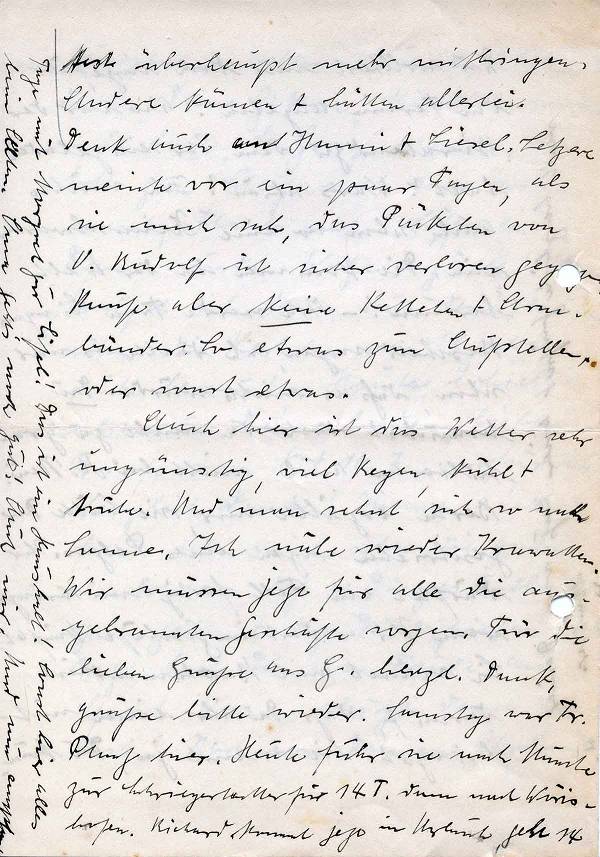 Heste überhaupt mehr mitbringen.
Andere können + hätten allerlei.
Denk auch an Hanni + Liesel. Letzere
meinte vor ein paar Tagen, als
sie mich sah, das Päckchen von
V. Rudolf ist sicher verloren gegangen
Kaufe aber keine Ketteten + Arm-
bänder. So etwas zum Aufstellen,
oder sonst etwas.
Auch hier ist das Wetter sehr
ungünstig, viel Regen, kühl +
trübe. Und man sehnt sich so nach
Sonne. Ich nähe wieder Krawatten.
Wir müssen jezt für alle die aus-
gebrannten Geschäfte sorgen. Für die
lieben Grüße aus G. herzl. Dank,
grüße bitte wieder. Samstg war Fr.
hier. Heute fuhr sie nach
zur für 14 T. dann nach Wöris-
hofen. Richard kommt jezt in Urlaub, geht 14
Tage mit Margret zur Das ist im Hus hier alles
beim Alten. Uns gehts auch gut! Und nun